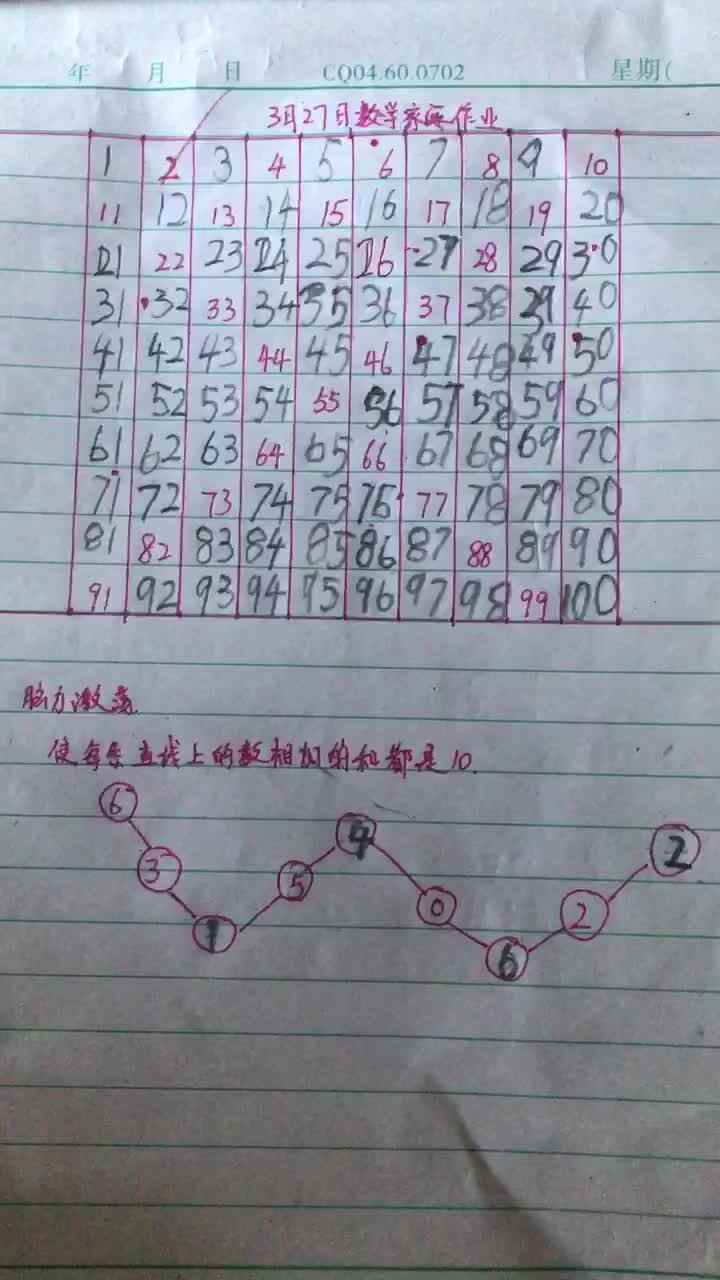 年 月 日 CQ04.60.0702 星期(
3月27日数学家庭作业
1 2 3 4 5 6 7 8 9 10
11 12 13 14 15 16 17 18 19 20
21 22 23 24 25 26 27 28 29 30
31 32 33 34 35 36 37 38 39 40
41 42 43 44 45 46 47 48 49 50
51 52 53 54 55 56 57 58 59 60
61 62 63 64 65 66 67 68 69 70
71 72 73 74 75 76 77 78 79 80
81 82 83 84 85 86 87 88 89 90
91 92 93 94 95 96 97 98 99 100
脑力激荡
使每条直线上的数相加的和都是10.
6 3 1 5 4 0 6 2 2